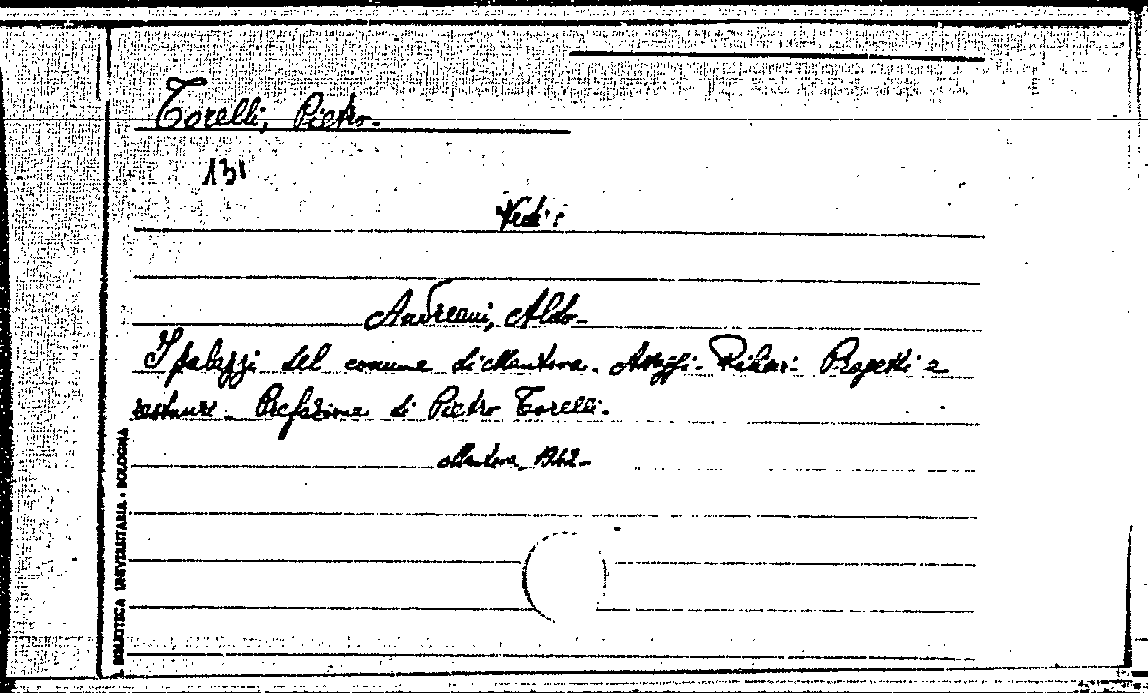 Torelli, Pietro-
131
Vedi:
Andreani, Aldo-
I palazzi del comune di Mantova. Assaggi- Rilievi- Progetti e
restauri- Prefazione di Pietro Torelli.
Mantova, 1942-
BIBLIOTECA UNIVERSITARIA - BOLOGNA